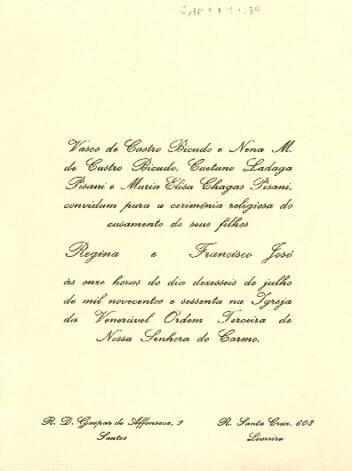 Vasco de Castro Bicudo e Nena M.
de Castro Bicudo, Caetano Ladaga
Pisani e Maria Elisa Chagas Pisani,
convidam para a cerimônia religiosa do
casamento de seus filhos
Regina e Francisco José
às onze horas do dia dezesseis de julho
de mil novecentos e sessenta na Igreja
da Venerável Ordem Terceira de
Nossa Senhora do Carmo.
R. D. Gaspar de Affonseca, 9 R. Santa Cruz, 603
Santos Limeira